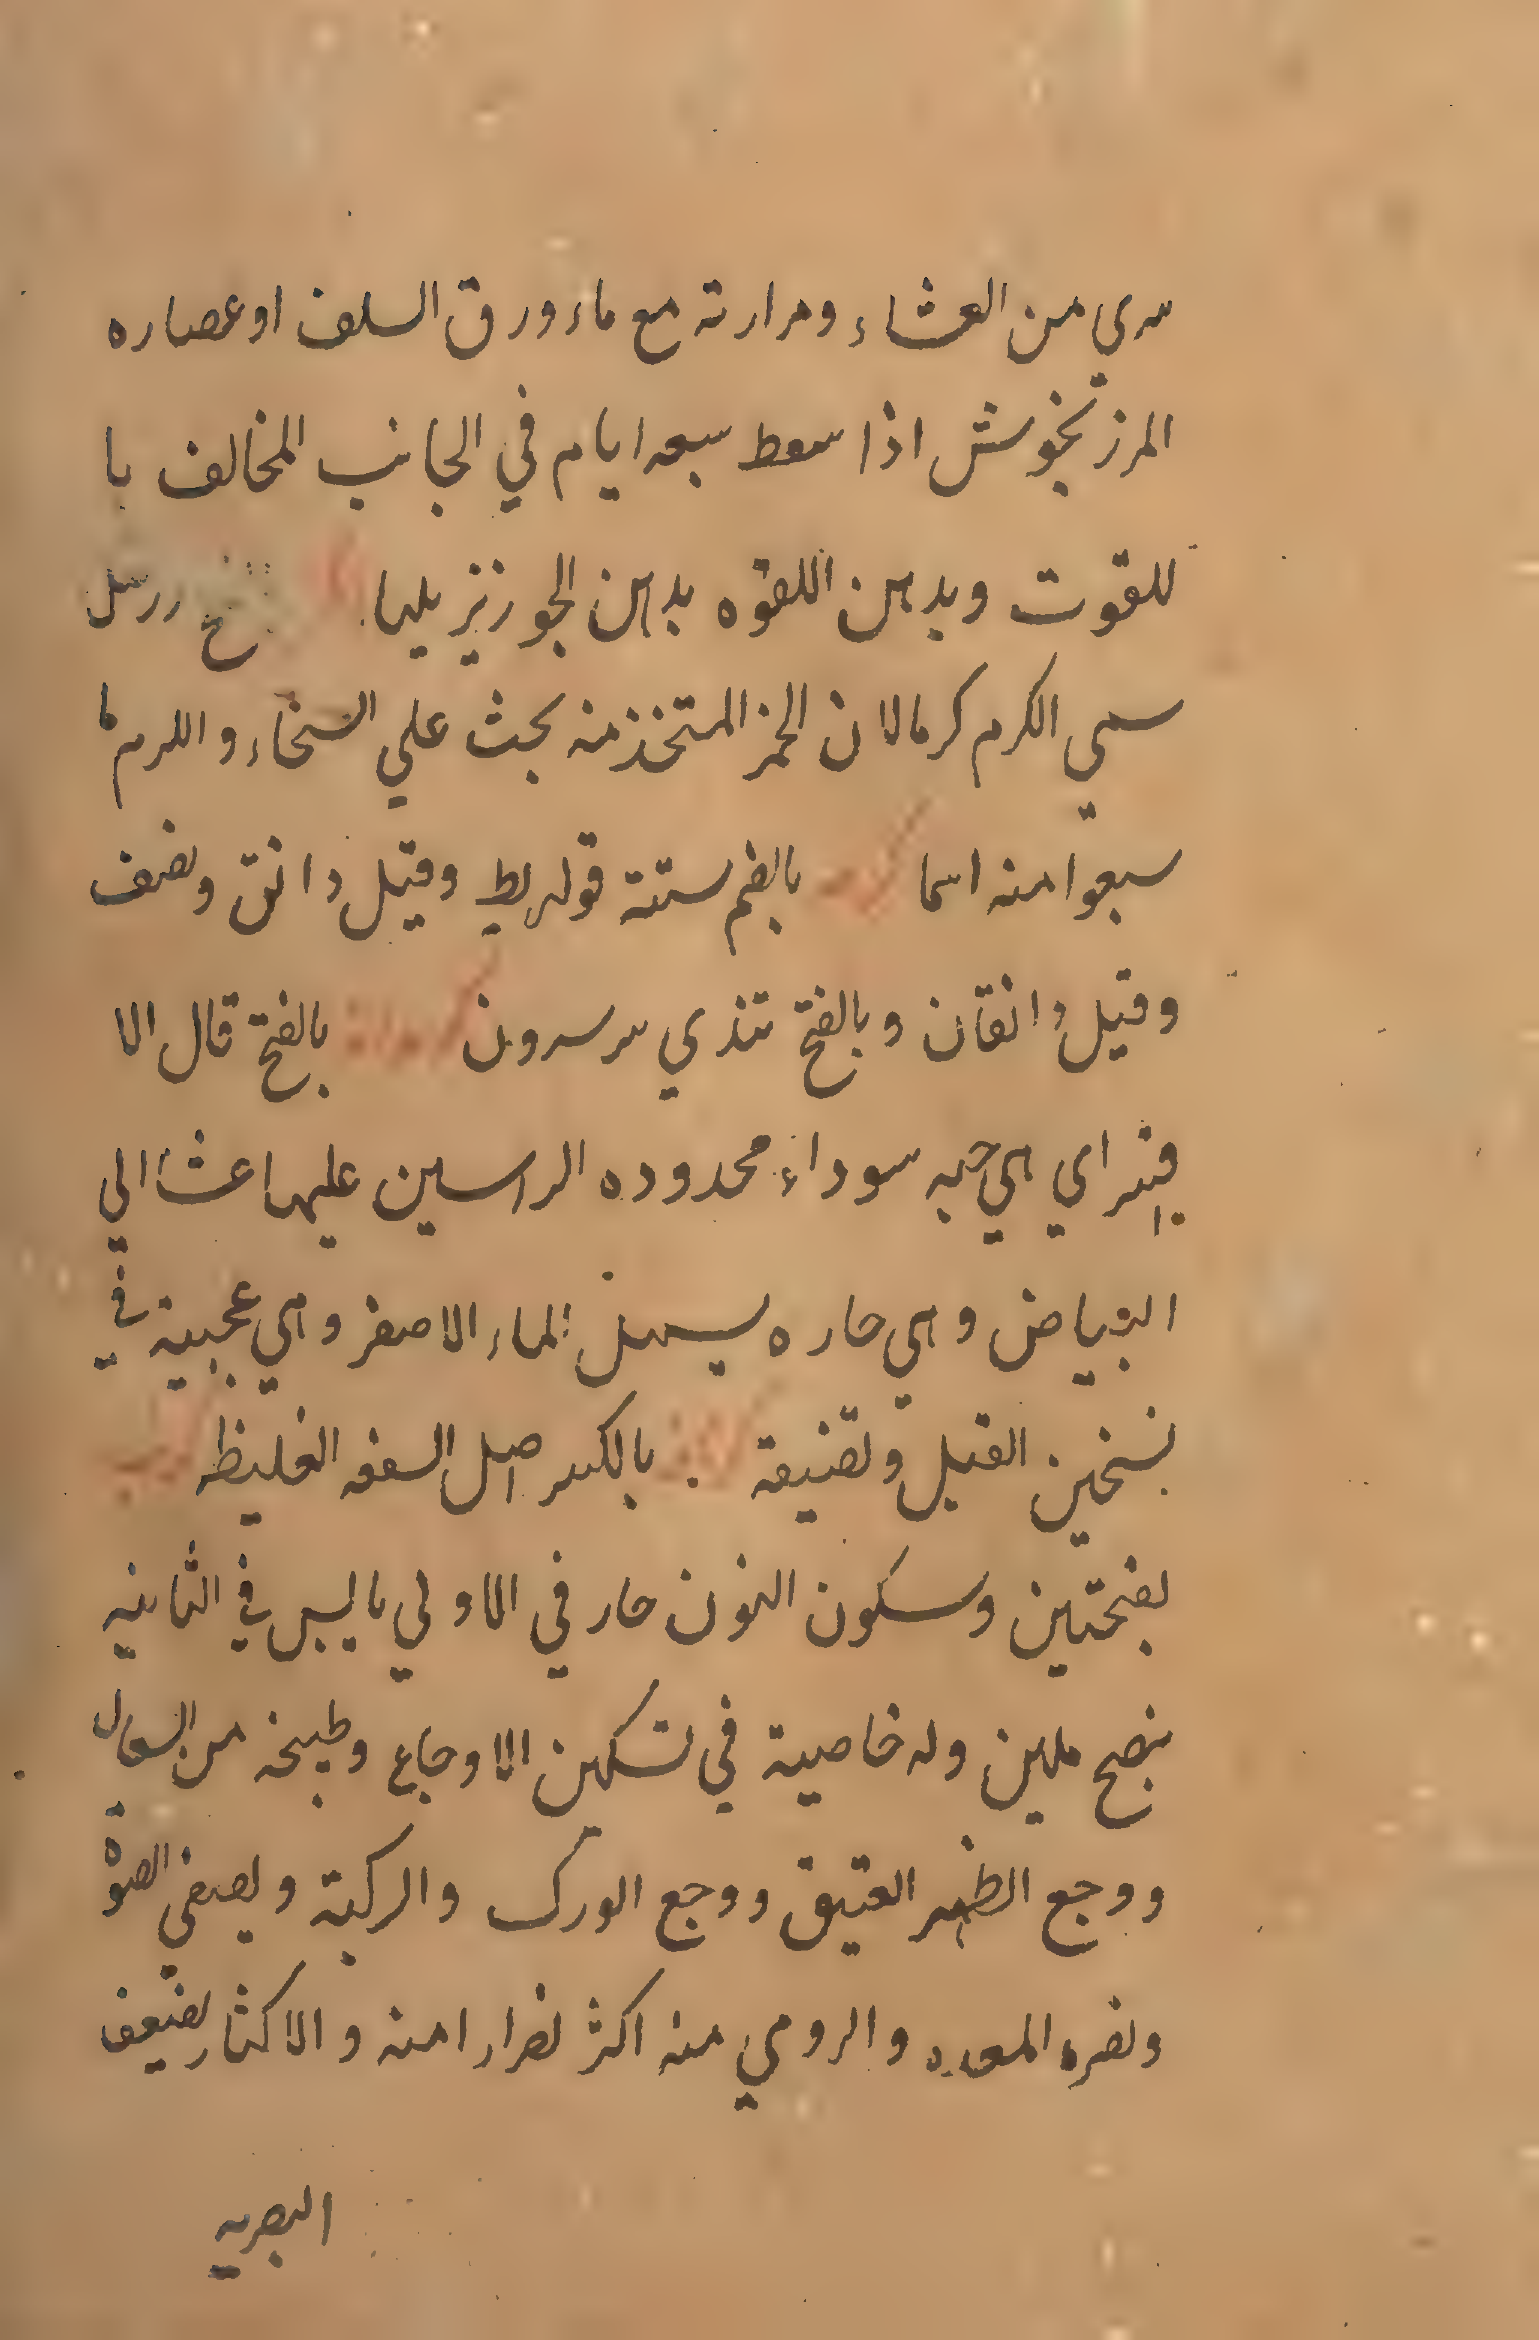 سري من العشاء ومرارته مع ماء ورق السلف اوعصاره
المرزنخوش اذا سعط سبعه ايام في الجانب المخالف با
للقوت وبدهن اللقوه بدهن الجوز نزيلها
سمي الكرم كرما لان الخمر المتخذ منه يحث علي السخاء و
سبعوا منه اسما بالضم ستة قولريط وقيل دانق ونصف
وقيل دانقان وبالفتح تتذي سرسرون بالفتح قال الا
فتراي هي حبه سوداء محدوده الراسين عليها غشا الي
البياض وهي حاره يسهل الماء الاصفر وهي عجيبة في
تسخين القبل وتضيقه بالكسر اصل السعفه الغليظه
بفتحتين وسكون النون حار في الاولي يابس في الثانيه
ينضج ملين وله خاصية في تسكين الاوجاع وطبيخه من السعال
ووجع الظهر العتيق ووجع الورك والركبة ويصفي الصوة
وتضره المعده والرومي منه اكثر اضرارا منه والاكثار يضعف
البصريه